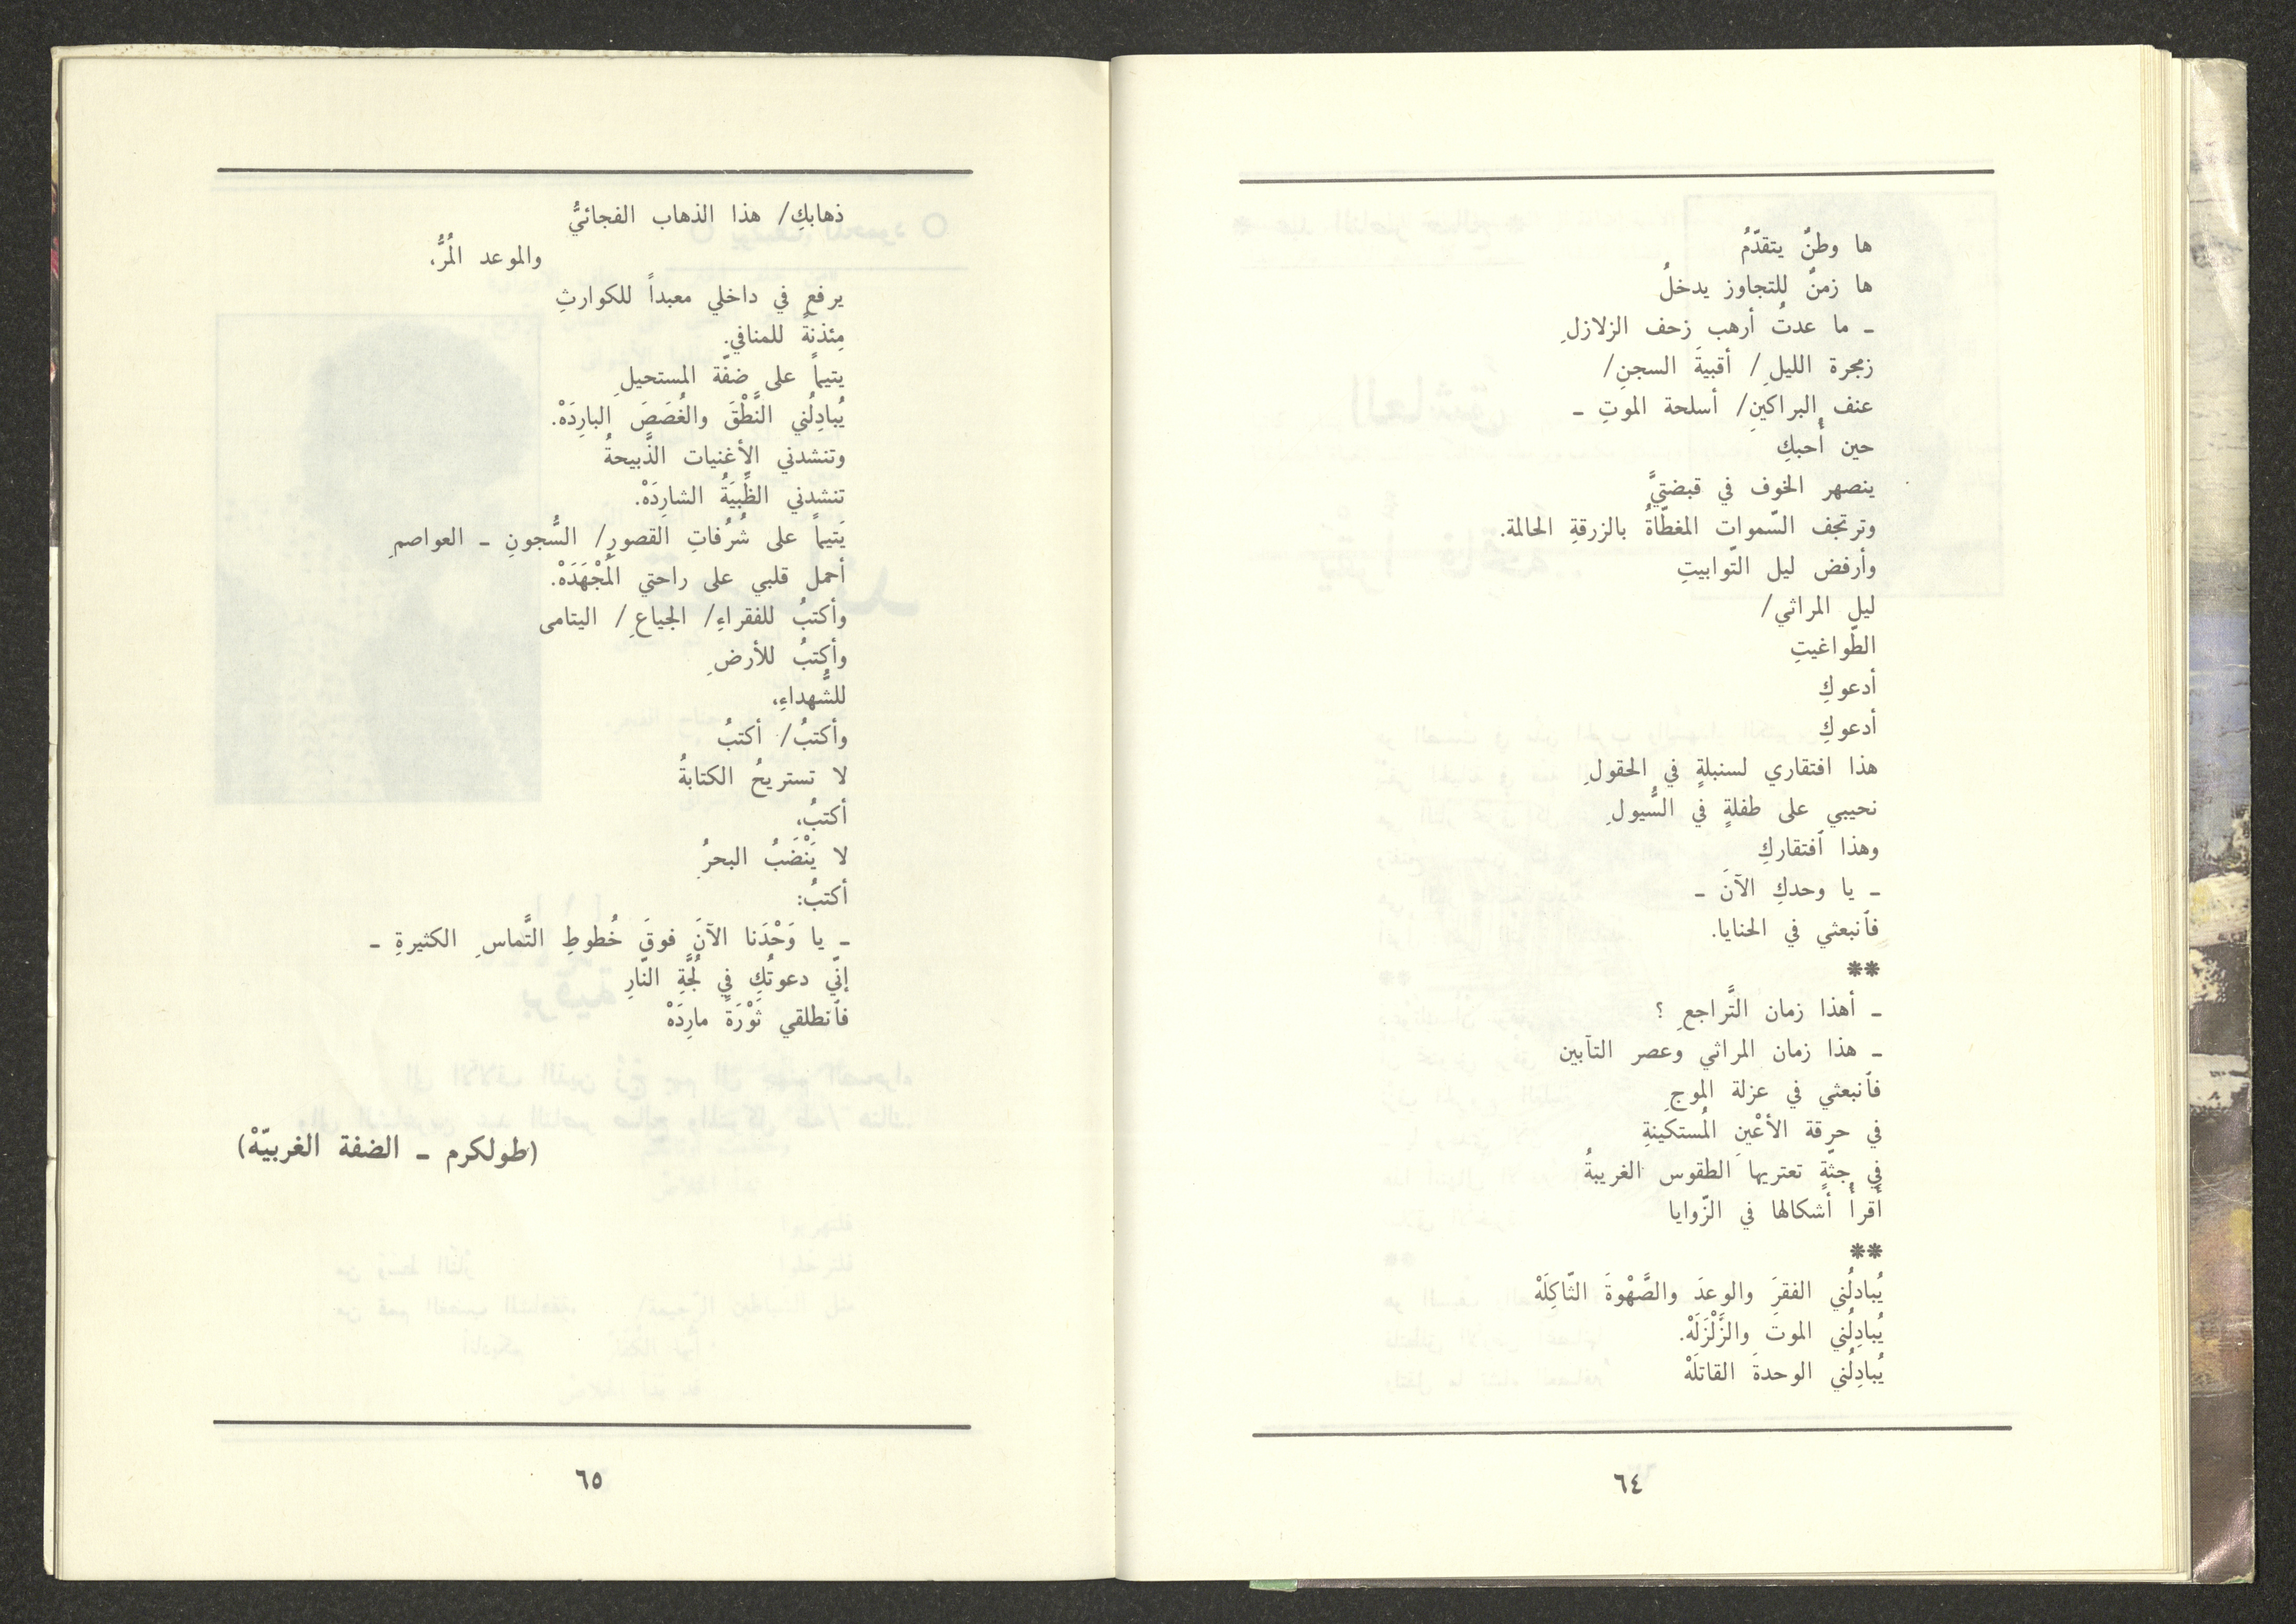 ها وطنٌ يتقدّمُ
ها زمنٌ للتجاوز يدخلُ
ـ ما عدتُ أرهب زحف الزلازلِ
زمجرة الليلِ/ أقبيةَ السجنِ/
عنف البراكينِ/ أسلحة الموتِ ـ
حين أُحبكِ
ينصهر الخوف في قبضتيَّ
وترتجف السّمواتِ المغطّاةُ بالزرقةِ الحالمة.
وأرفض ليل التّوابيتِ
ليل المراثي/
الطّواغيتِ
أدعوكِ
أدعوكِ
هذا افتقاري لسنبلةٍ في الحقولِ
نحيبي على طفلةٍ في السُّيولِ
وهذا ٱفتقاركِ
ـ يا وحدكِ الآنَ ـ
فٱنبعثي في الحنايا.
**
ـ أهذا زمان التَّراجعِ ؟
ـ هذا زمان المراثي وعصر التآبين
فٱنبعثي في عزلة الموجِ
في حرقة الأعْينِ المُستكينةِ
في جثّةٍ تعتريها الطقوس الغريبةُ
أقرأُ أشكالها في الزّوايا
**
يُبادلُني الفقرَ والوعدَ والصَّهْوةَ الثّاكِلَهْ
يُبادِلُني الموتَ والزَّلْزَلَهْ.
يُبادِلُني الوحدةَ القاتلَهْ
٦٤
ذهابكِ/ هذا الذهاب الفجائيُّ
والموعد المُرُّ،
يرفع في داخلي معبداً للكوارثِ
مِئذنةً للمنافي.
يتيماً على ضفّة المستحيلِ
يُبادِلُني النَّطْقَ والغُصَصَ البارِدَهْ.
وتنشدني الأغنيات الذَّبيحةُ
تنشدني الظَّبيَةُ الشارِدَهْ.
يَتيماً على شُرُفاتِ القصورِ/ السُّجونِ ـ العواصمِ
أحمل قلبي على راحتي المُجْهَدَهْ.
وأكتبُ للفقراءِ/ الجياعِ/ اليتامى
وأكتبُ للأرضِ
للشُّهداءِ،
وأكتبُ/ أكتبُ
لا تستريحُ الكتابةُ
أكتبُ،
لا يَنْضَبُ البحرُ
أكتبُ:
ـ يا وَحْدَنا الآنَ فوقَ خُطوطِ التَّماسِ الكثيرةِ ـ
إنّي دعوتُكِ في لُجَّةِ النّارِ
فٱنطلقي ثَوْرَةً مارِدَهْ
(طولكرم ـ الضفة الغربيّهْ)
٦٥